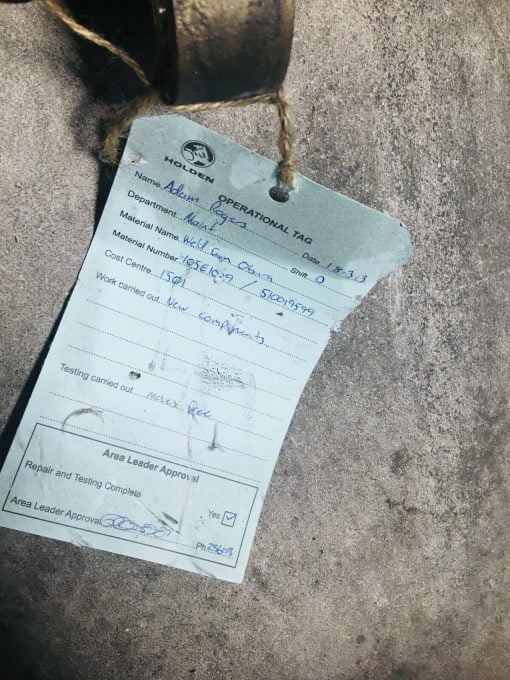 HOLDEN
OPERATIONAL TAG
Name Adam Rogers Date 18.3.13
Department Maint Shift D
Material Name Weld Gun Obara
Material Number / 510019599
Cost Centre 1501
Work carried out New components.
Testing carried out Moves free
Area Leader Approval
Repair and Testing Complete Yes ☑
Area Leader Approval Ph.